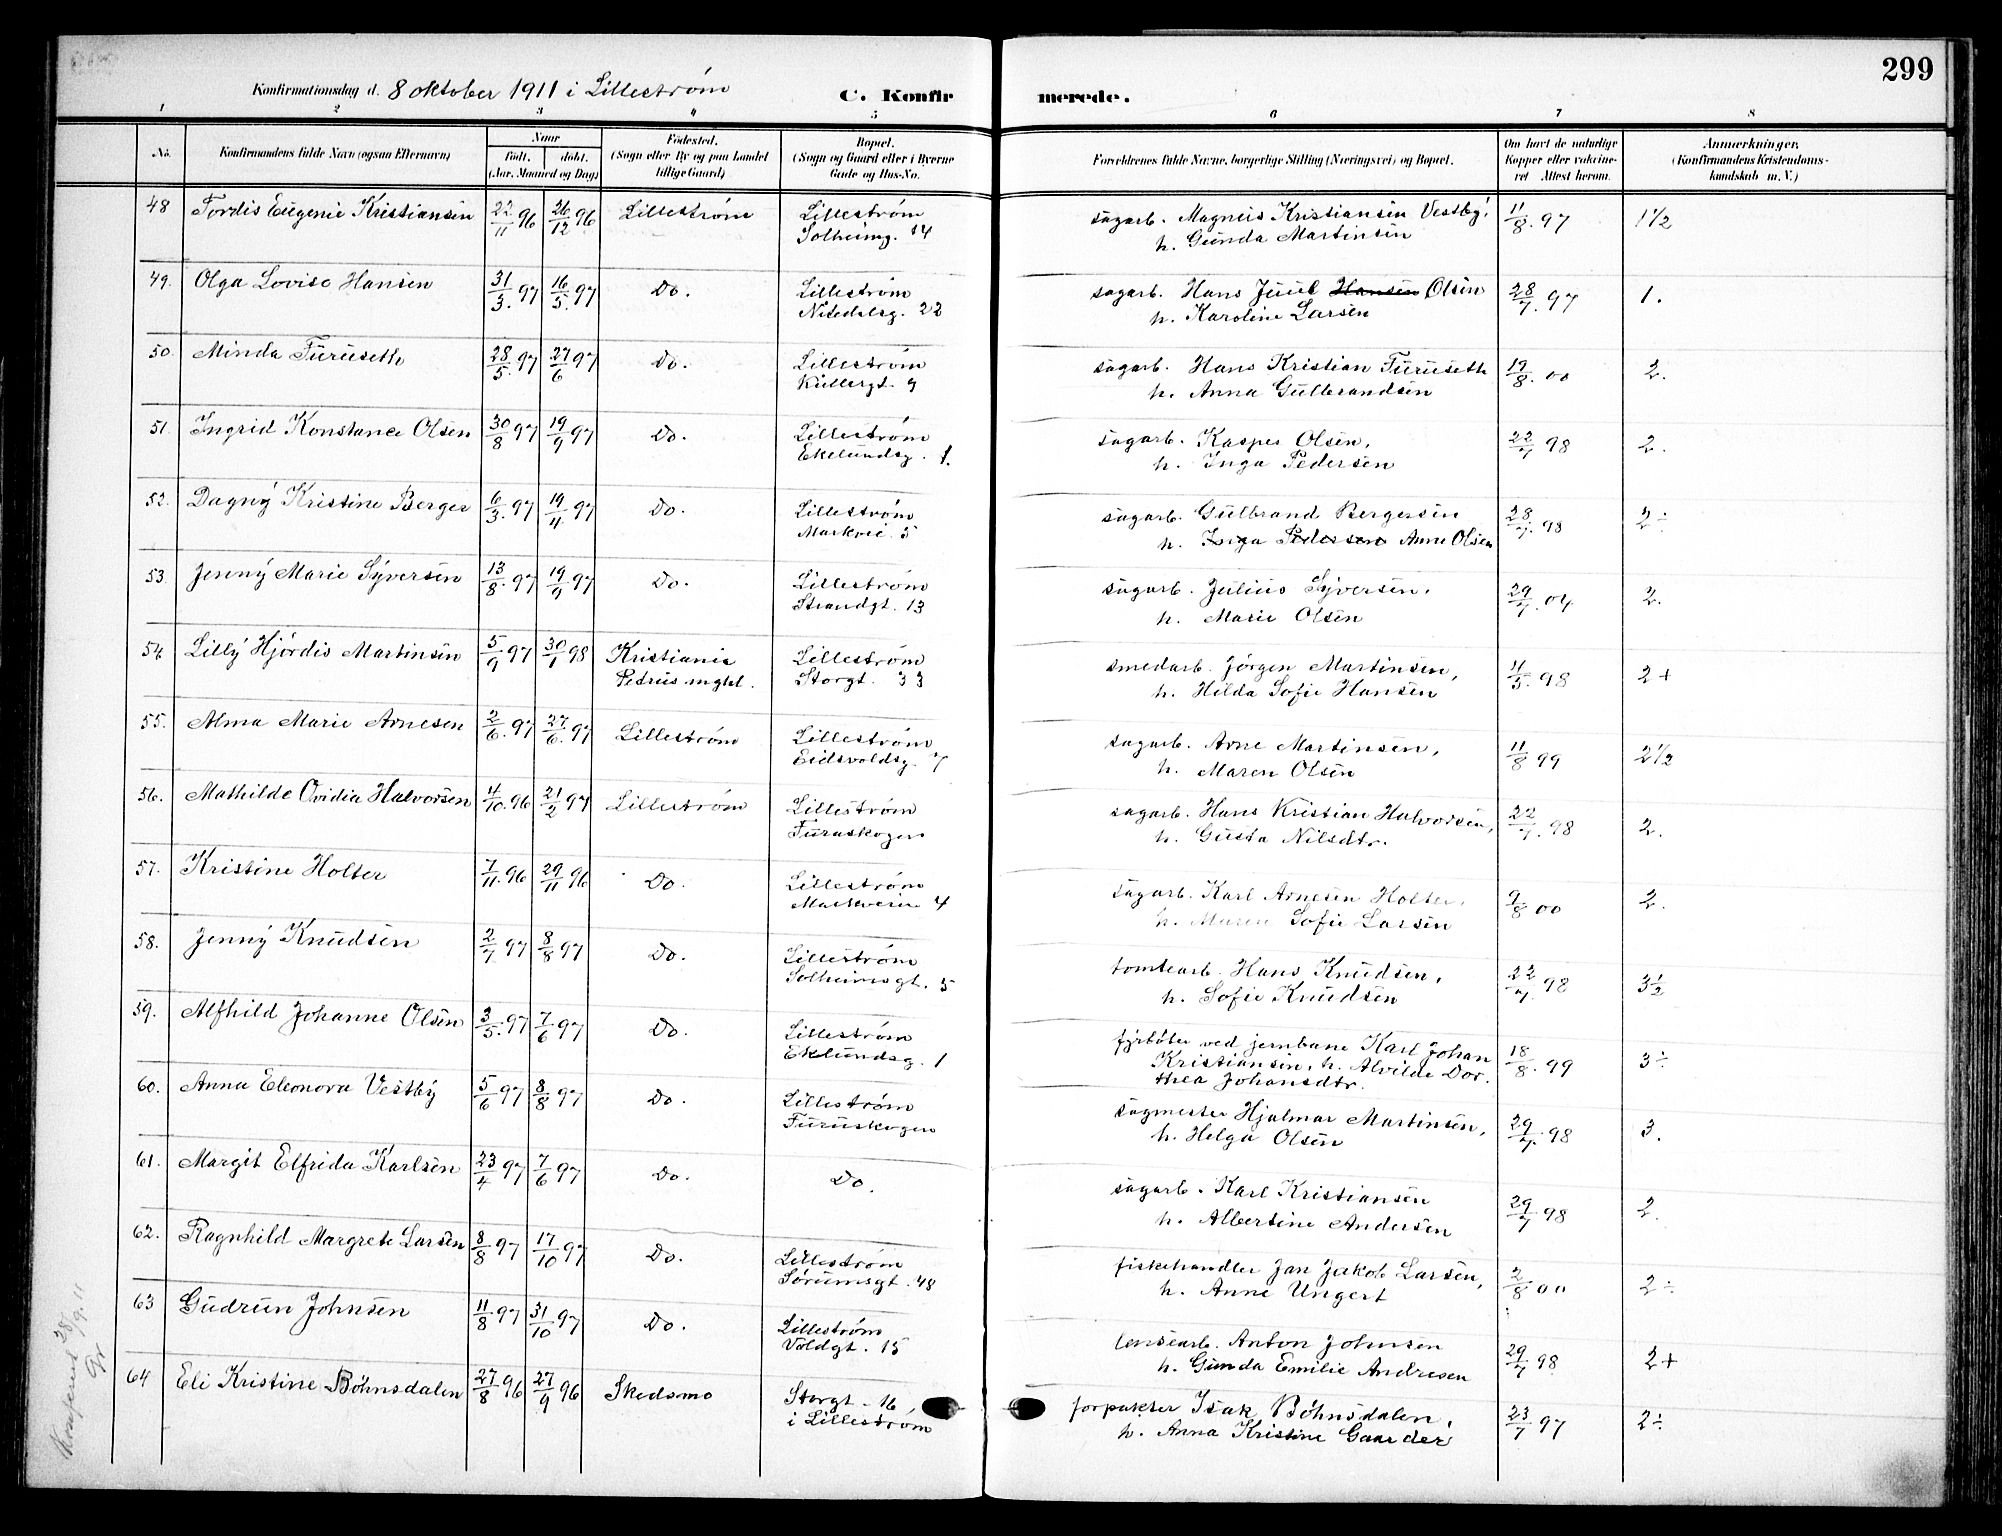 299
Konfirmationsdag d. 8 oktober 1911 i Lillestrøm
C. Konfirmerede.
1 2 3 4 5 6 7 8
No.
Konfirmandens fulde Navn (ogsaa Efternavn)
Naar
født. døbt.
(Aar, Maaned og Dag)
Fødested.
(Sogn eller By og paa Landet
tillige Gaard)
Bopæl.
(Sogn og Gaard eller i Byerne
Gade og Hus-No.
Forældrenes fulde Navne, borgerlige Stilling (Næringsvei) og Bopæl.
Om havt de naturlige
Kopper eller vakcine-
ret Attest herom.
Anmærkninger.
(Konfirmandens Kristendoms-
kundskab m. V.)
48 Tordis Eugenie Kristiansen 22/11 96 26/12 96 Lillestrøm Lillestrøm sagarb. Magnus Kristiansen Vestby, 11/8. 97 1 1/2
Solheimg. 14 h. Gunda Martinsen
49. Olga Lovise Hansen 31/3. 97 16/5. 97 Do. Lillestrøm sagarb. Hans Juul Hansen Olsen 28/7. 97 1.
Nitedalsg. 22 h. Karoline Larsen
50. Minda Furuseth 28/5. 97 27/6 97 Do. Lillestrøm sagarb. Hans Kristian Furuseth 19/8. 00 2.
9 h. Anna Gulbrandsen
51. Ingrid Konstance Olsen 30/8 97 19/9 97 Do. Lillestrøm sagarb. Kasper Olsen, 22/7 98 2.
Ekelundsg. 1. h. Inga Pedersen
52. Dagny Kristine Berger 6/3. 97 19/4 97 Do. Lillestrøm sagarb. Gulbrand Bergersen 28/7. 98 2 ÷
Markvei. 5 h. Inga Pedersen Anne Olsen
53. Jenny Marie Syversen 13/8. 97 19/9 97 Do. Lillestrøm sagarb. Julius Syversen, 29/7. 04 2.
Strandgt. 13 h. Marie Olsen
54. Lilly Hjørdis Martinsen 5/9 97 30/1 98 Kristiania Lillestrøm smedarb. Jørgen Martinsen, 11/5. 98 2 +
Petrus mght. Storgt. 33 h. Hilda Sofie Hansen
55. Alma Marie Arnesen 2/6. 97 27/6. 97 Lillestrøm Lillestrøm sagarb. Arne Martinsen, 11/8 99 2 1/2
Eidsvoldsg. 7 h. Maren Olsen
56. Mathilde Ovidia Halvorsen 11/10. 96 21/2 97 Lillestrøm Lillestrøm sagarb. Hans Kristian Halvorsen, 22/7. 98 2.
Furuskogen h. Gusta Nilsdtr.
57. Kristine Holter 7/11. 96 29/11 96 Do. Lillestrøm sagarb. Karl Arnesen Holter, 9/8 00 2.
Markveien 4 h. Maren Sofie Larsen
58. Jenny Knudsen 2/7 97 8/8 97 Do. Lillestrøm tomtearb. Hans Knudsen, 22/7. 98 3 1/2
Solheimsgt. 5 h. Sofie Knudsen
59. Alfhild Johanne Olsen 3/5. 97 7/6 97 Do. Lillestrøm fyrbøter ved jernbane Karl Johan 18/8. 99 3 ÷
Eklundsg. 1 Kristiansen, h. Alvilde Dor.
thea Johansdtr.
60. Anna Eleonora Vestby 5/6 97 8/8 97 Do. Lillestrøm sagmester Hjalmar Martinsen, 29/7. 98 3.
Furuskogen h. Helga Olsen
61. Margit Elfrida Karlsen 23/4 97 7/6 97 Do. Do. sagarb. Karl Kristiansen 29/7 98 2.
h. Albertine Andersen
62. Ragnhild Margrete Larsen 8/8 97 17/10 97 Do. Lillestrøm fiskehandler Jan Jakob Larsen, 2/8 00 2 ÷
Sørumsgt. 48 h. Anne Ungert
63 Gudrun Johnsen 11/8 97 31/10 97 Do. Lillestrøm lensearb. Anton Johnsen 29/7 98 2 +
Voldgt. 15 h. Gunda Emilie Andresen
64 Eli Kristine Bøhnsdalen 27/8 96 27/9 96 Skedsmo Storgt. 16 forpakter Isak Bøhnsdalen, 23/7 97 2 ÷
i Lillestrøm h. Anna Kristine Gaarder
Konfereret 28/9. 11